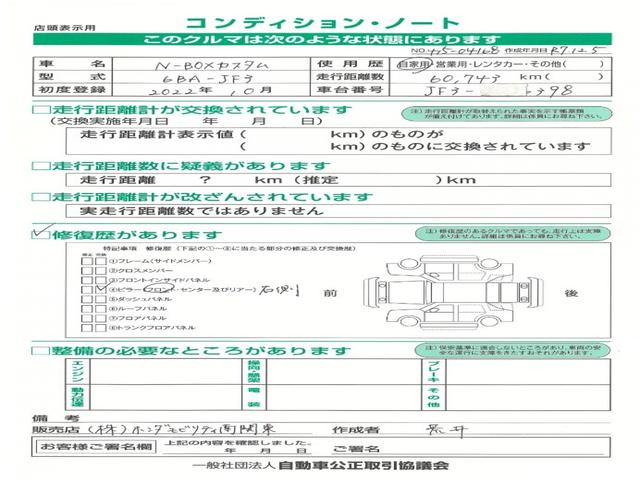 店頭表示用
コンディション・ノート
このクルマは次のような状態にあります
NO. 作成年月日 R7.12.5
車名 N-BOXカスタム 使用歴 自家用・営業用・レンタカー・その他( )
型式 6BA-JF3 走行距離数 60,743 km( )
初度登録 2022年10月 車台番号 JF3- 398
□走行距離計が交換されています
(注)走行距離計が取替えられた事実を示す帳票類が備え付けてあります。詳細は係員にお尋ね下さい。
(交換実施年月日 年 月 日)
走行距離計表示値( km)のものが
( km)のものに交換されています
□走行距離数に疑義があります
走行距離 ? km(推定 )km
□走行距離計が改ざんされています
実走行距離数ではありません
□修復歴があります
(注)修復歴のあるクルマであっても、走行上は支障ありません。詳細は係員にお尋ね下さい。
特記事項 修復歴(下記の①~⑧に当たる部分の修正及び交換歴)
修正 交換
□□①フレーム(サイドメンバー)
□□②クロスメンバー
□□③フロントインサイドパネル
□□④ピラー(フロント・センター及びリアー)
□□⑤ダッシュパネル
□□⑥ルーフパネル
□□⑦フロアパネル
□□⑧トランクフロアパネル
前 後
□整備の必要なところがあります
(注)保安基準に適合しないところがあり、車両の安全な運行に支障をきたすおそれがあります。
エンジン 操向・懸架 ブレーキ
動力伝達 電装 その他
備考
販売店 (株)ホンダモビリティ南関東 作成者 荒井
お客様ご署名欄 上記の内容を確認しました。
年 月 日
一般社団法人 自動車公正取引協議会